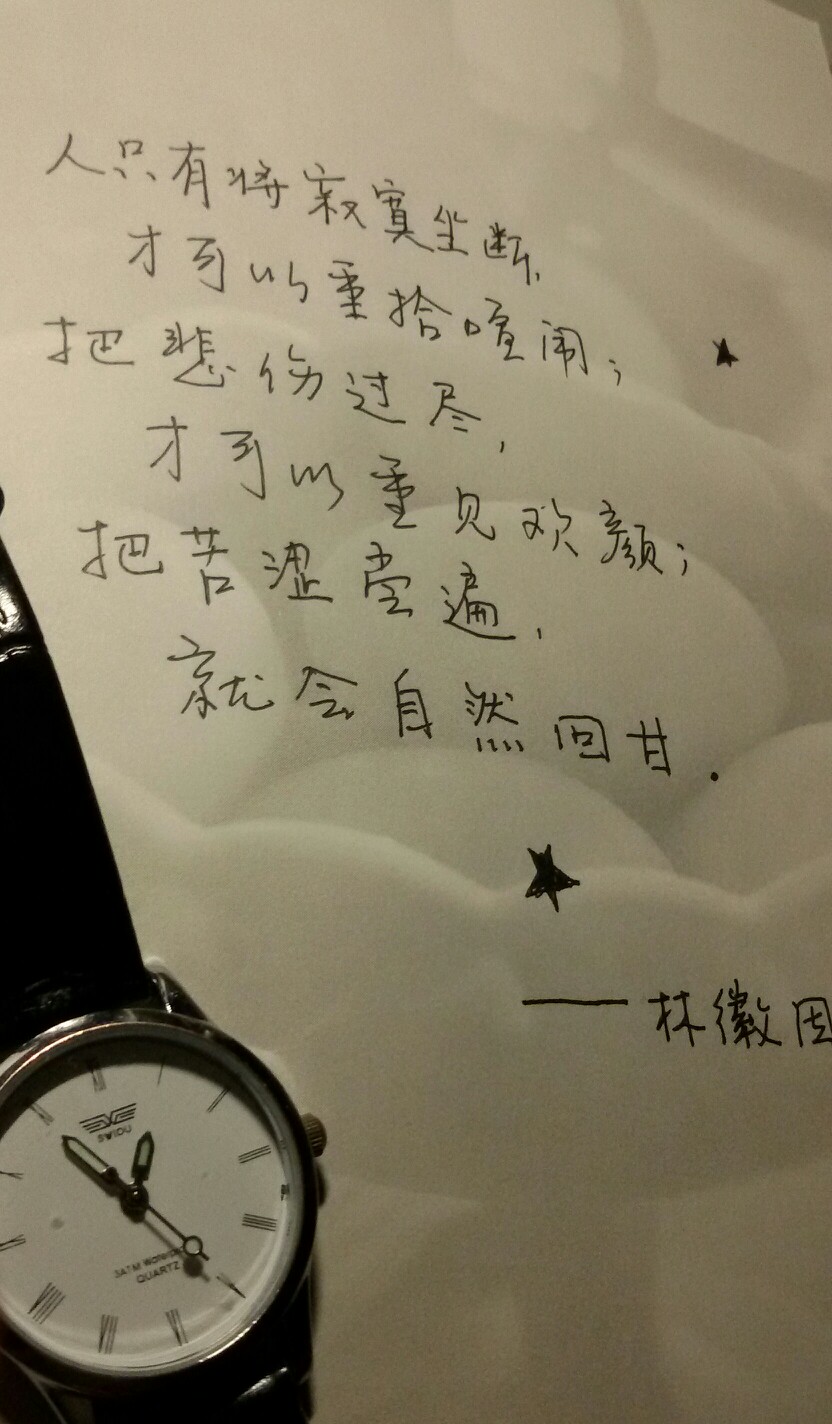 人只有将寂寞坐断,
才可以重拾喧闹;
把悲伤过尽,
才可以重见欢颜;
把苦涩尝遍,
就会自然回甘.
——林徽因
SWIDU
3ATM
QUARTZ